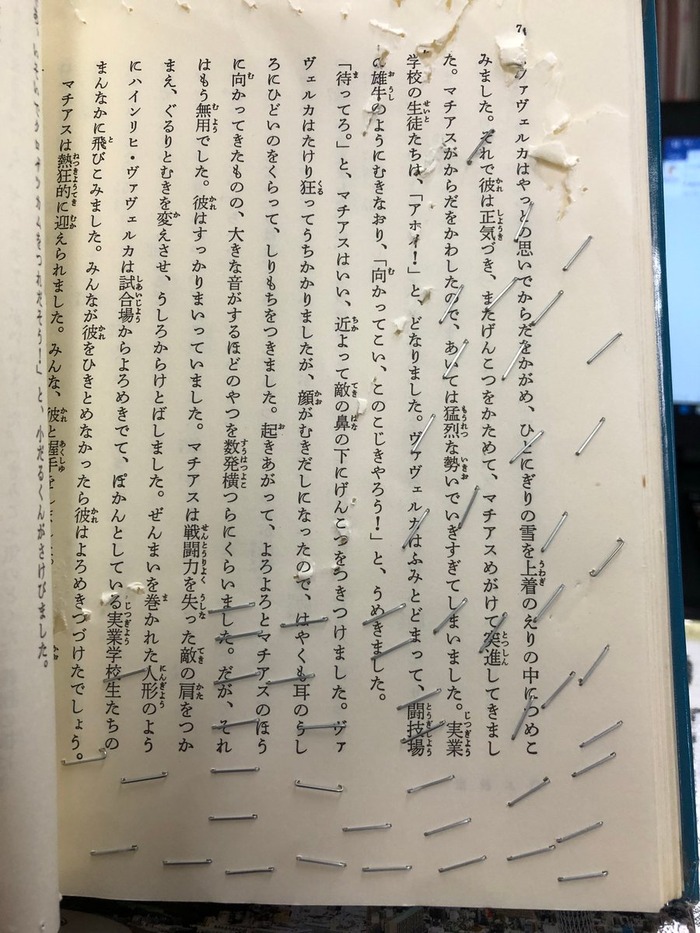 7
ヴァヴェルカはやっとの思いでからだをかがめ、ひとにぎりの雪を上着のえりの中につめこ
みました。それで彼は正気づき、またげんこつをかためて、マチアスめがけて突進してきまし
た。マチアスがからだをかわしたので、あいては猛烈な勢いでいきすぎてしまいました。実業
学校の生徒たちは、「アホイ！」と、どなりました。ヴァヴェルカはふみとどまって、闘技場
の雄牛のようにむきなおり、「向かってこい、このこじきやろう！」と、うめきました。
「待ってろ。」と、マチアスはいい、近よって敵の鼻の下にげんこつをつきつけました。ヴァ
ヴェルカはたけり狂ってうちかかりましたが、顔がむきだしになったので、はやくも耳のうし
ろにひどいのをくらって、しりもちをつきました。起きあがって、よろよろとマチアスのほう
に向かってきたものの、大きな音がするほどのやつを数発横つらにくらいました。だが、それ
はもう無用でした。彼はすっかりまいっていました。マチアスは戦闘力を失った敵の肩をつか
まえ、ぐるりとむきを変えさせ、うしろからけとばしました。ぜんまいを巻かれた人形のよう
にハインリヒ・ヴァヴェルカは試合場からよろめきでて、ぽかんとしている実業学校生たちの
まんなかに飛びこみました。みんなが彼をひきとめなかったら彼はよろめきつづけたでしょう。
マチアスは熱狂的に迎えられました。みんな、彼と握手をしました。
と、小だるくんがさけびました。